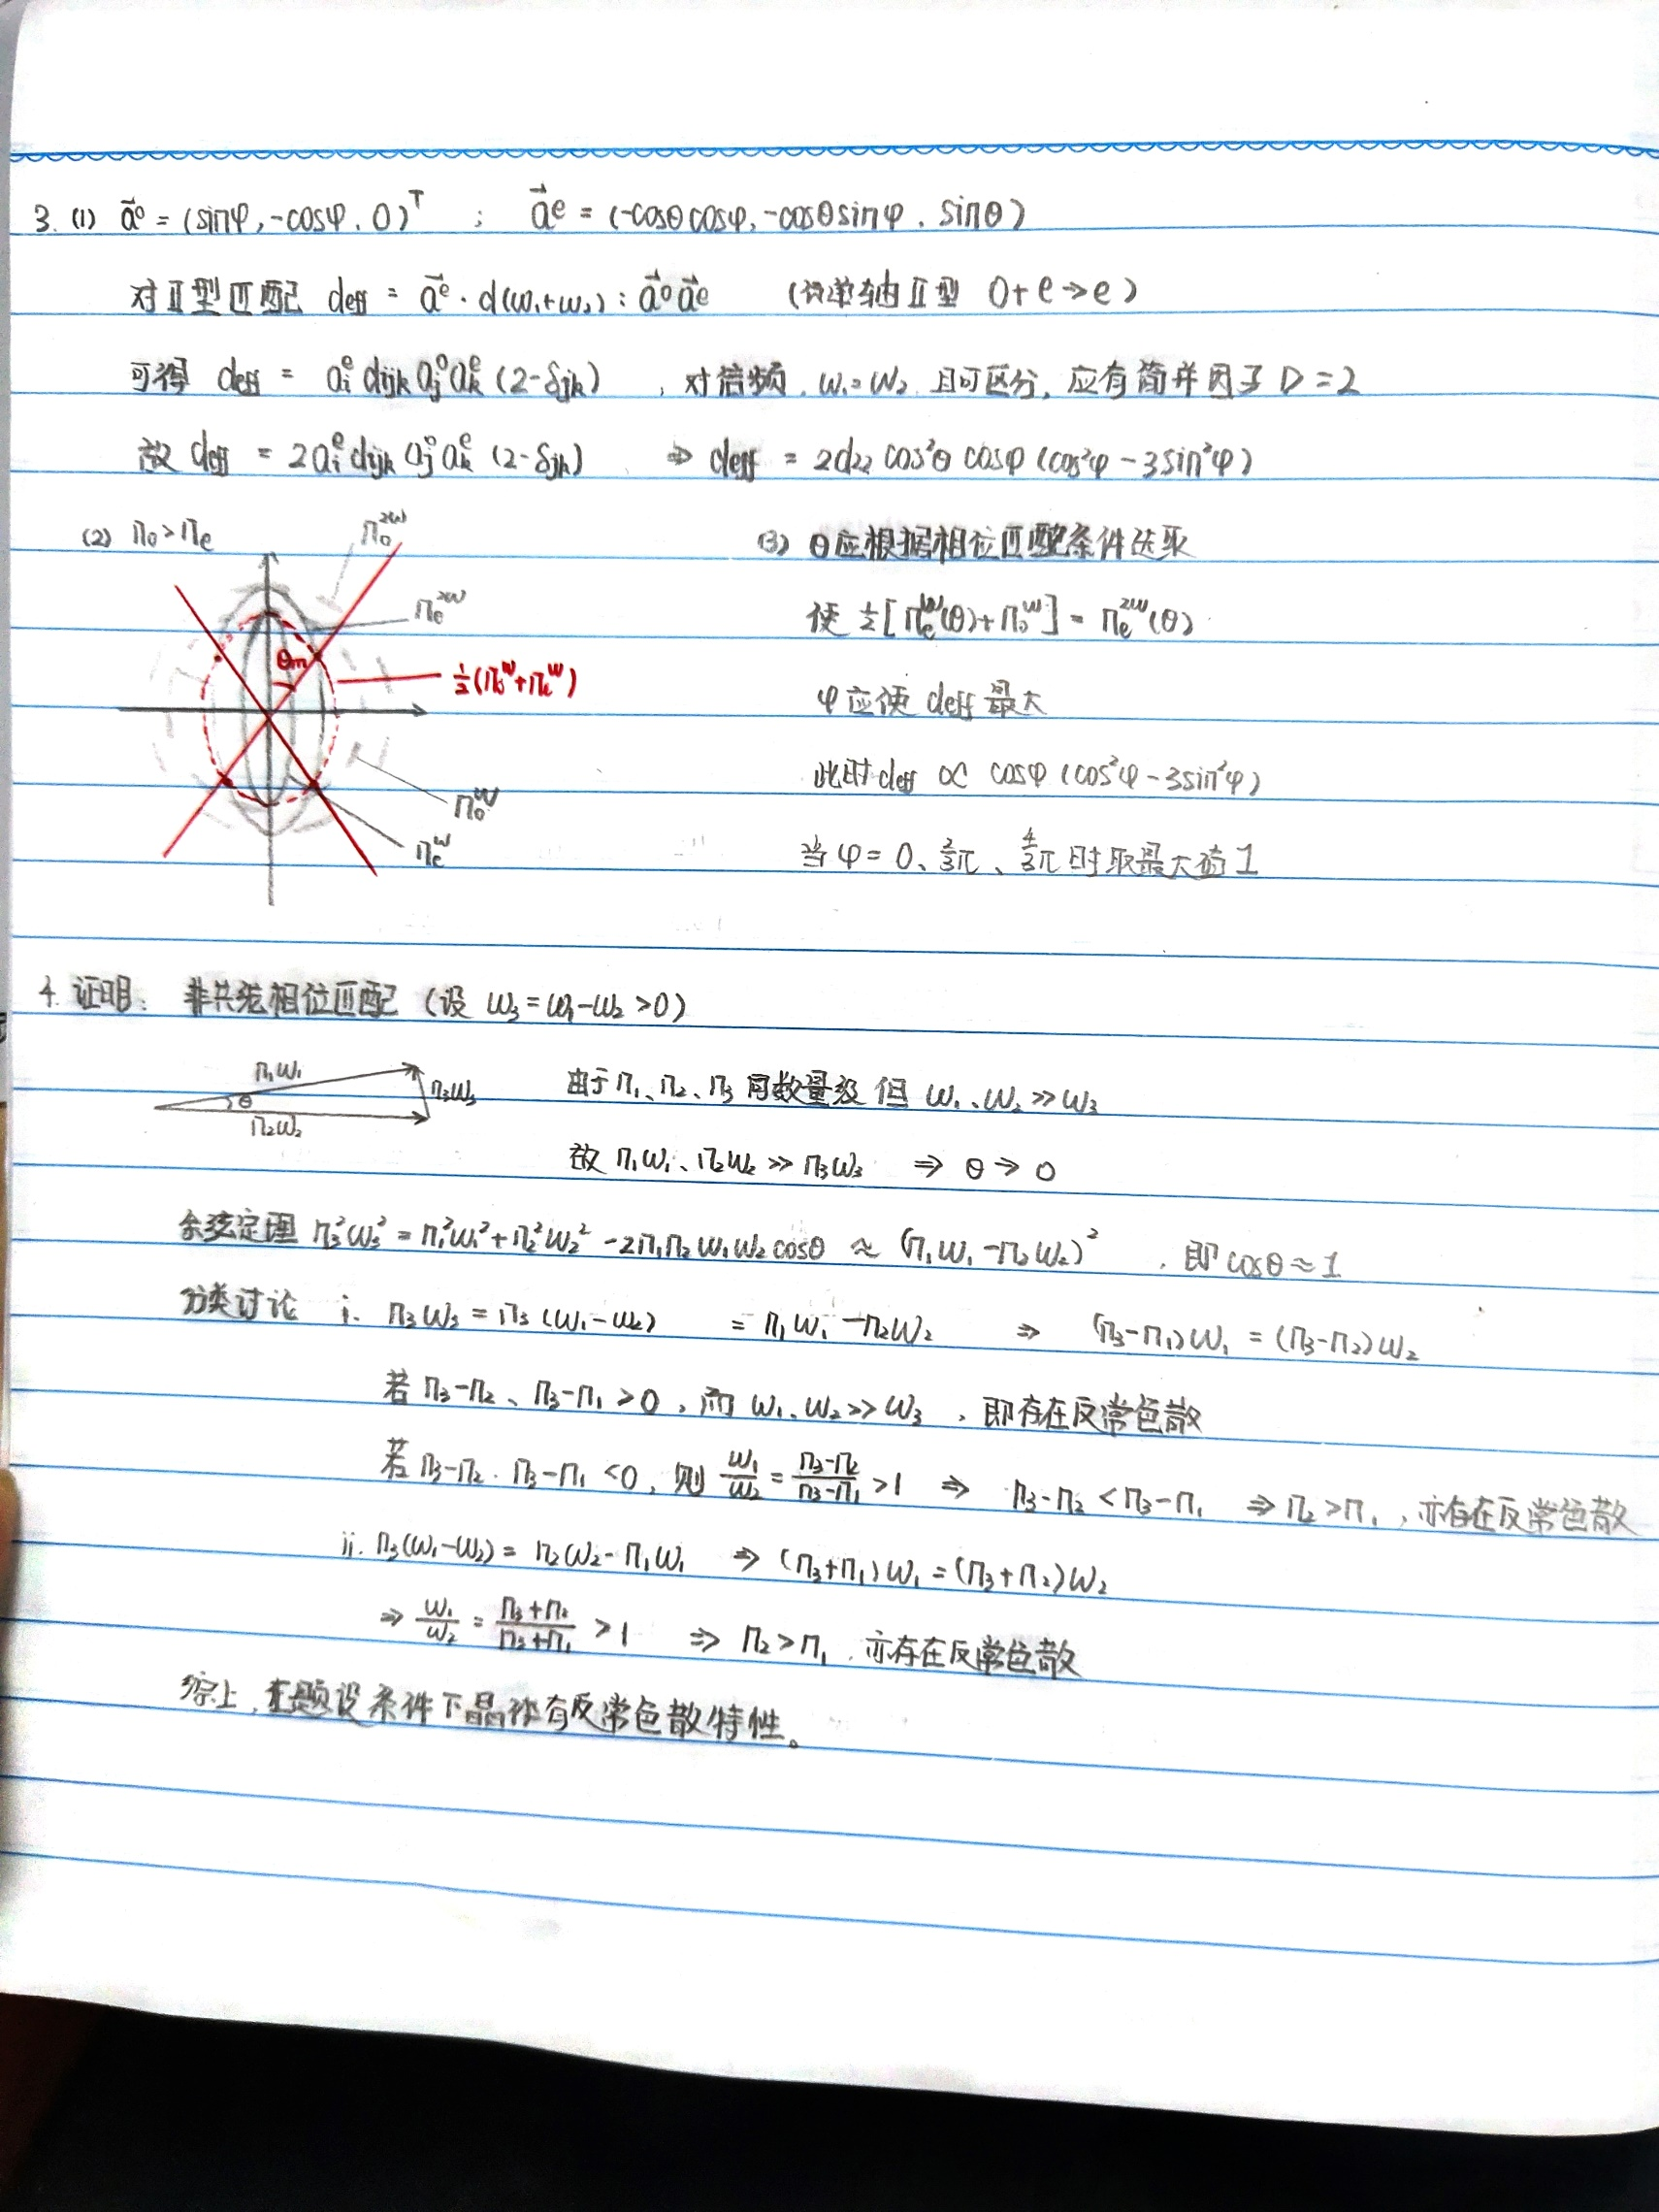 3. (1) a⃗ᵒ = (sinφ, -cosφ, 0)ᵀ ; a⃗ᵉ = (-cosθcosφ, -cosθsinφ, sinθ)
对Ⅱ型匹配 deff = a⃗ᵉ · d(ω₁+ω₂) : a⃗ᵒ a⃗ᵉ (负单轴Ⅱ型 o+e→e)
可得 deff = aᵢᵉ dijk aⱼᵒ aₖᵉ (2-δjk) , 对倍频, ω₁=ω₂ 且可区分, 应有简并因子 D=2
故 deff = 2aᵢᵉ dijk aⱼᵒ aₖᵉ (2-δjk) ⇒ deff = 2d₂₂ cos²θ cosφ (cos²φ - 3sin²φ)
(2) n₀ > nₑ
n₀²ᵚ
nₑ²ᵚ
θm
½(n₀ᵚ+nₑᵚ)
n₀ᵚ
nₑᵚ
(3) θ应根据相位匹配条件选取
使 ½[nₑᵚ(θ)+n₀ᵚ] = nₑ²ᵚ(θ)
φ应使 deff 最大
此时 deff ∝ cosφ (cos²φ - 3sin²φ)
当 φ = 0、⅔π、4/3π 时取最大值 1
4. 证明: 非共线相位匹配 (设 ω₃ = ω₁-ω₂ > 0)
n₁ω₁
θ
n₃ω₃
n₂ω₂
由于 n₁、n₂、n₃ 同数量级 但 ω₁、ω₂ ≫ ω₃
故 n₁ω₁、n₂ω₂ ≫ n₃ω₃ ⇒ θ → 0
余弦定理 n₃²ω₃² = n₁²ω₁² + n₂²ω₂² - 2n₁n₂ω₁ω₂cosθ ≈ (n₁ω₁ - n₂ω₂)² , 即 cosθ ≈ 1
分类讨论 i. n₃ω₃ = n₃(ω₁-ω₂) = n₁ω₁ - n₂ω₂ ⇒ (n₃-n₁)ω₁ = (n₃-n₂)ω₂
若 n₃-n₂、n₃-n₁ > 0 , 而 ω₁、ω₂ ≫ ω₃ , 即存在反常色散
若 n₃-n₂、n₃-n₁ < 0, 则 ω₁/ω₂ = (n₃-n₂)/(n₃-n₁) > 1 ⇒ n₃-n₂ < n₃-n₁ ⇒ n₂ > n₁ , 亦存在反常色散
ii. n₃(ω₁-ω₂) = n₂ω₂ - n₁ω₁ ⇒ (n₃+n₁)ω₁ = (n₃+n₂)ω₂
⇒ ω₁/ω₂ = (n₃+n₂)/(n₃+n₁) > 1 ⇒ n₂ > n₁ , 亦存在反常色散
综上, 在题设条件下晶体有反常色散特性。